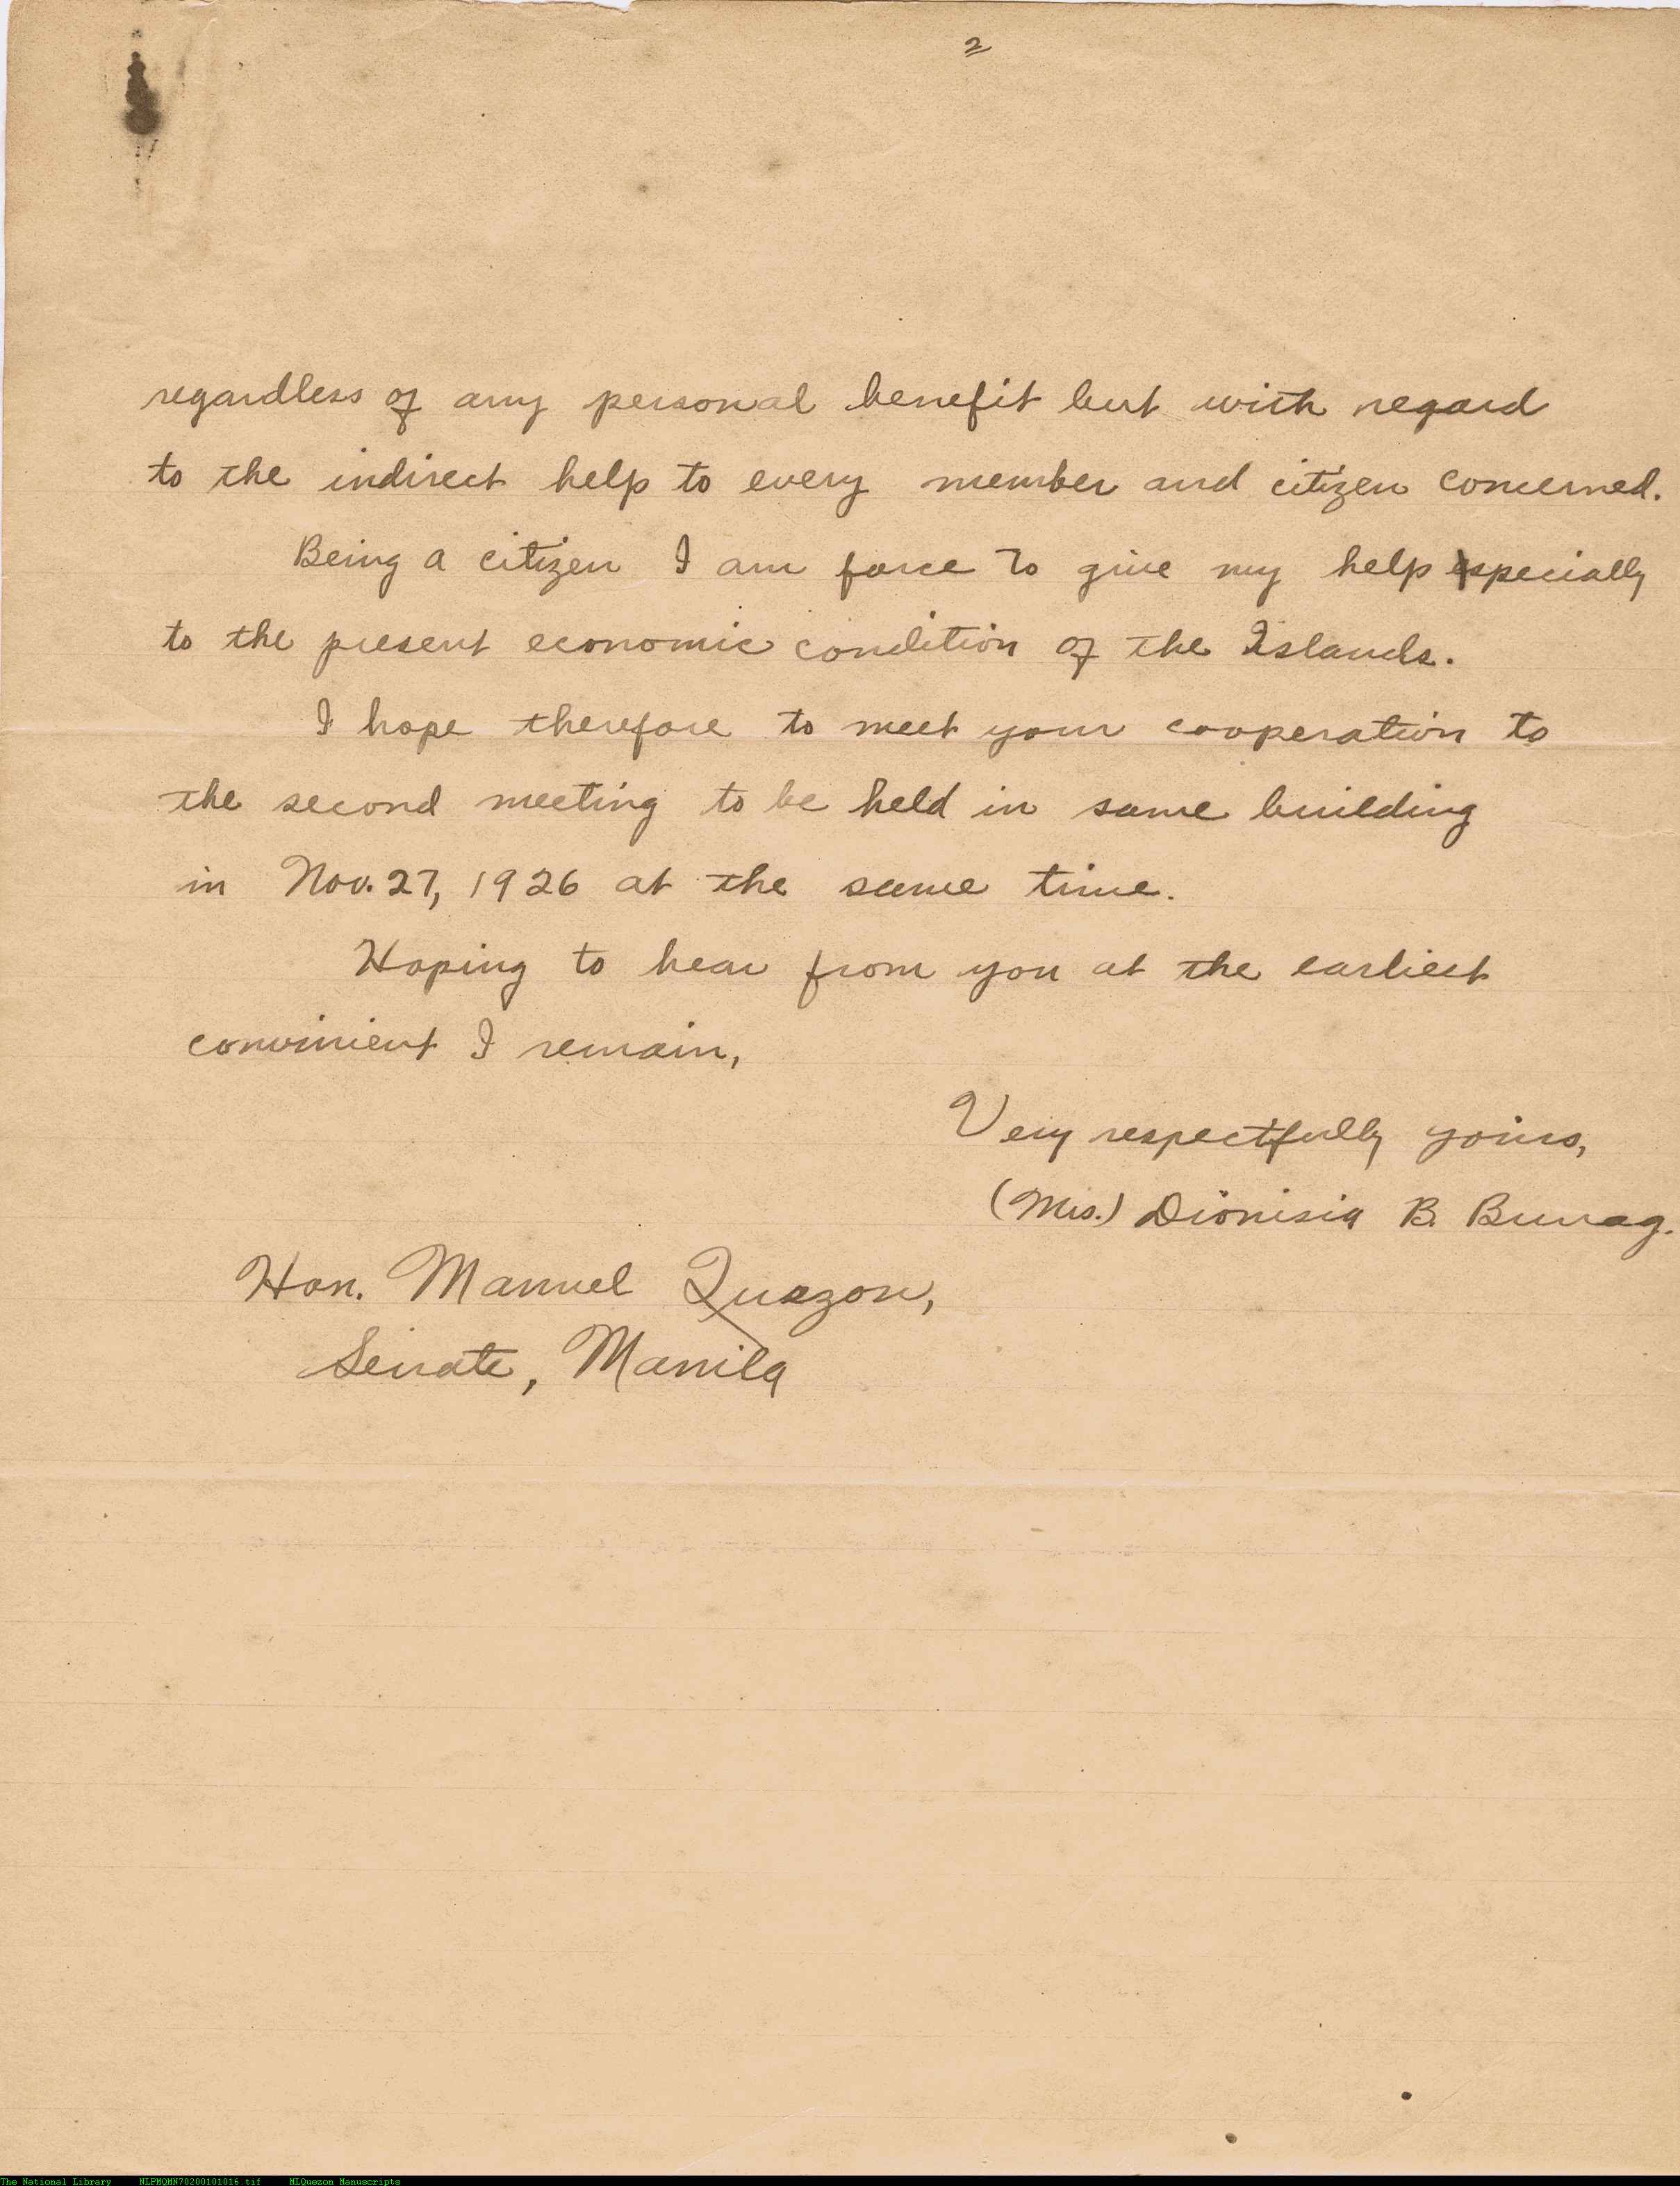 2
regardless of any personal benefit but with regard
to the indirect help to every member and citizen concerned.
Being a citizen I am force to give my help especially
to the present economic condition of the Islands.
I hope therefore to meet your cooperation to
the second meeting to be held in same building
in Nov. 27, 1926 at the same time.
Hoping to hear from you at the earliest
convinient I remain,
Very respectfully yours,
(Mrs.) Dionisia B. Bunag.
Hon. Manuel Quezon,
Senate, Manila
The National Library NLPMQMN70200101016.tif MLQuezon Manuscripts